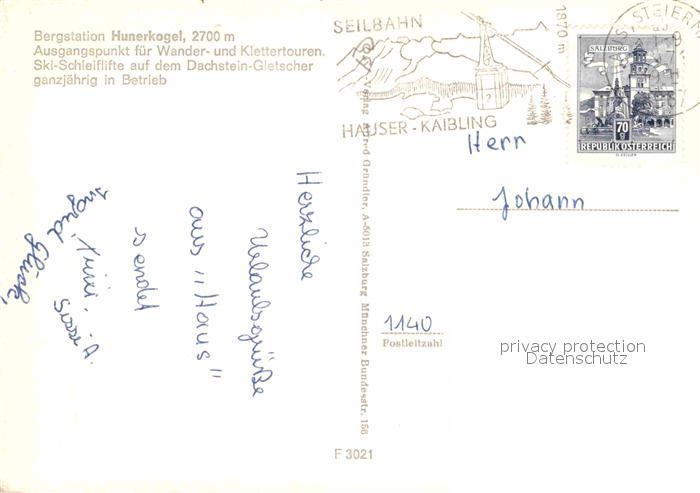 Bergstation Hunerkogel, 2700 m
Ausgangspunkt für Wander- und Klettertouren.
Ski-Schleiflifte auf dem Dachstein-Gletscher
ganzjährig in Betrieb
SEILBAHN
HAUSER-KAIBLING
1870 m
STEIERM
SALZBURG
70
REPUBLIK ÖSTERREICH
Verlag Alfred Gründler, A-5013 Salzburg Münchner Bundesstr. 156
Herzliche
Urlaubsgrüße
aus "Haus"
sendet
Ingrid Glück,
Sussi A.
Herr
Johann
1140
Postleitzahl
privacy protection
Datenschutz
F 3021